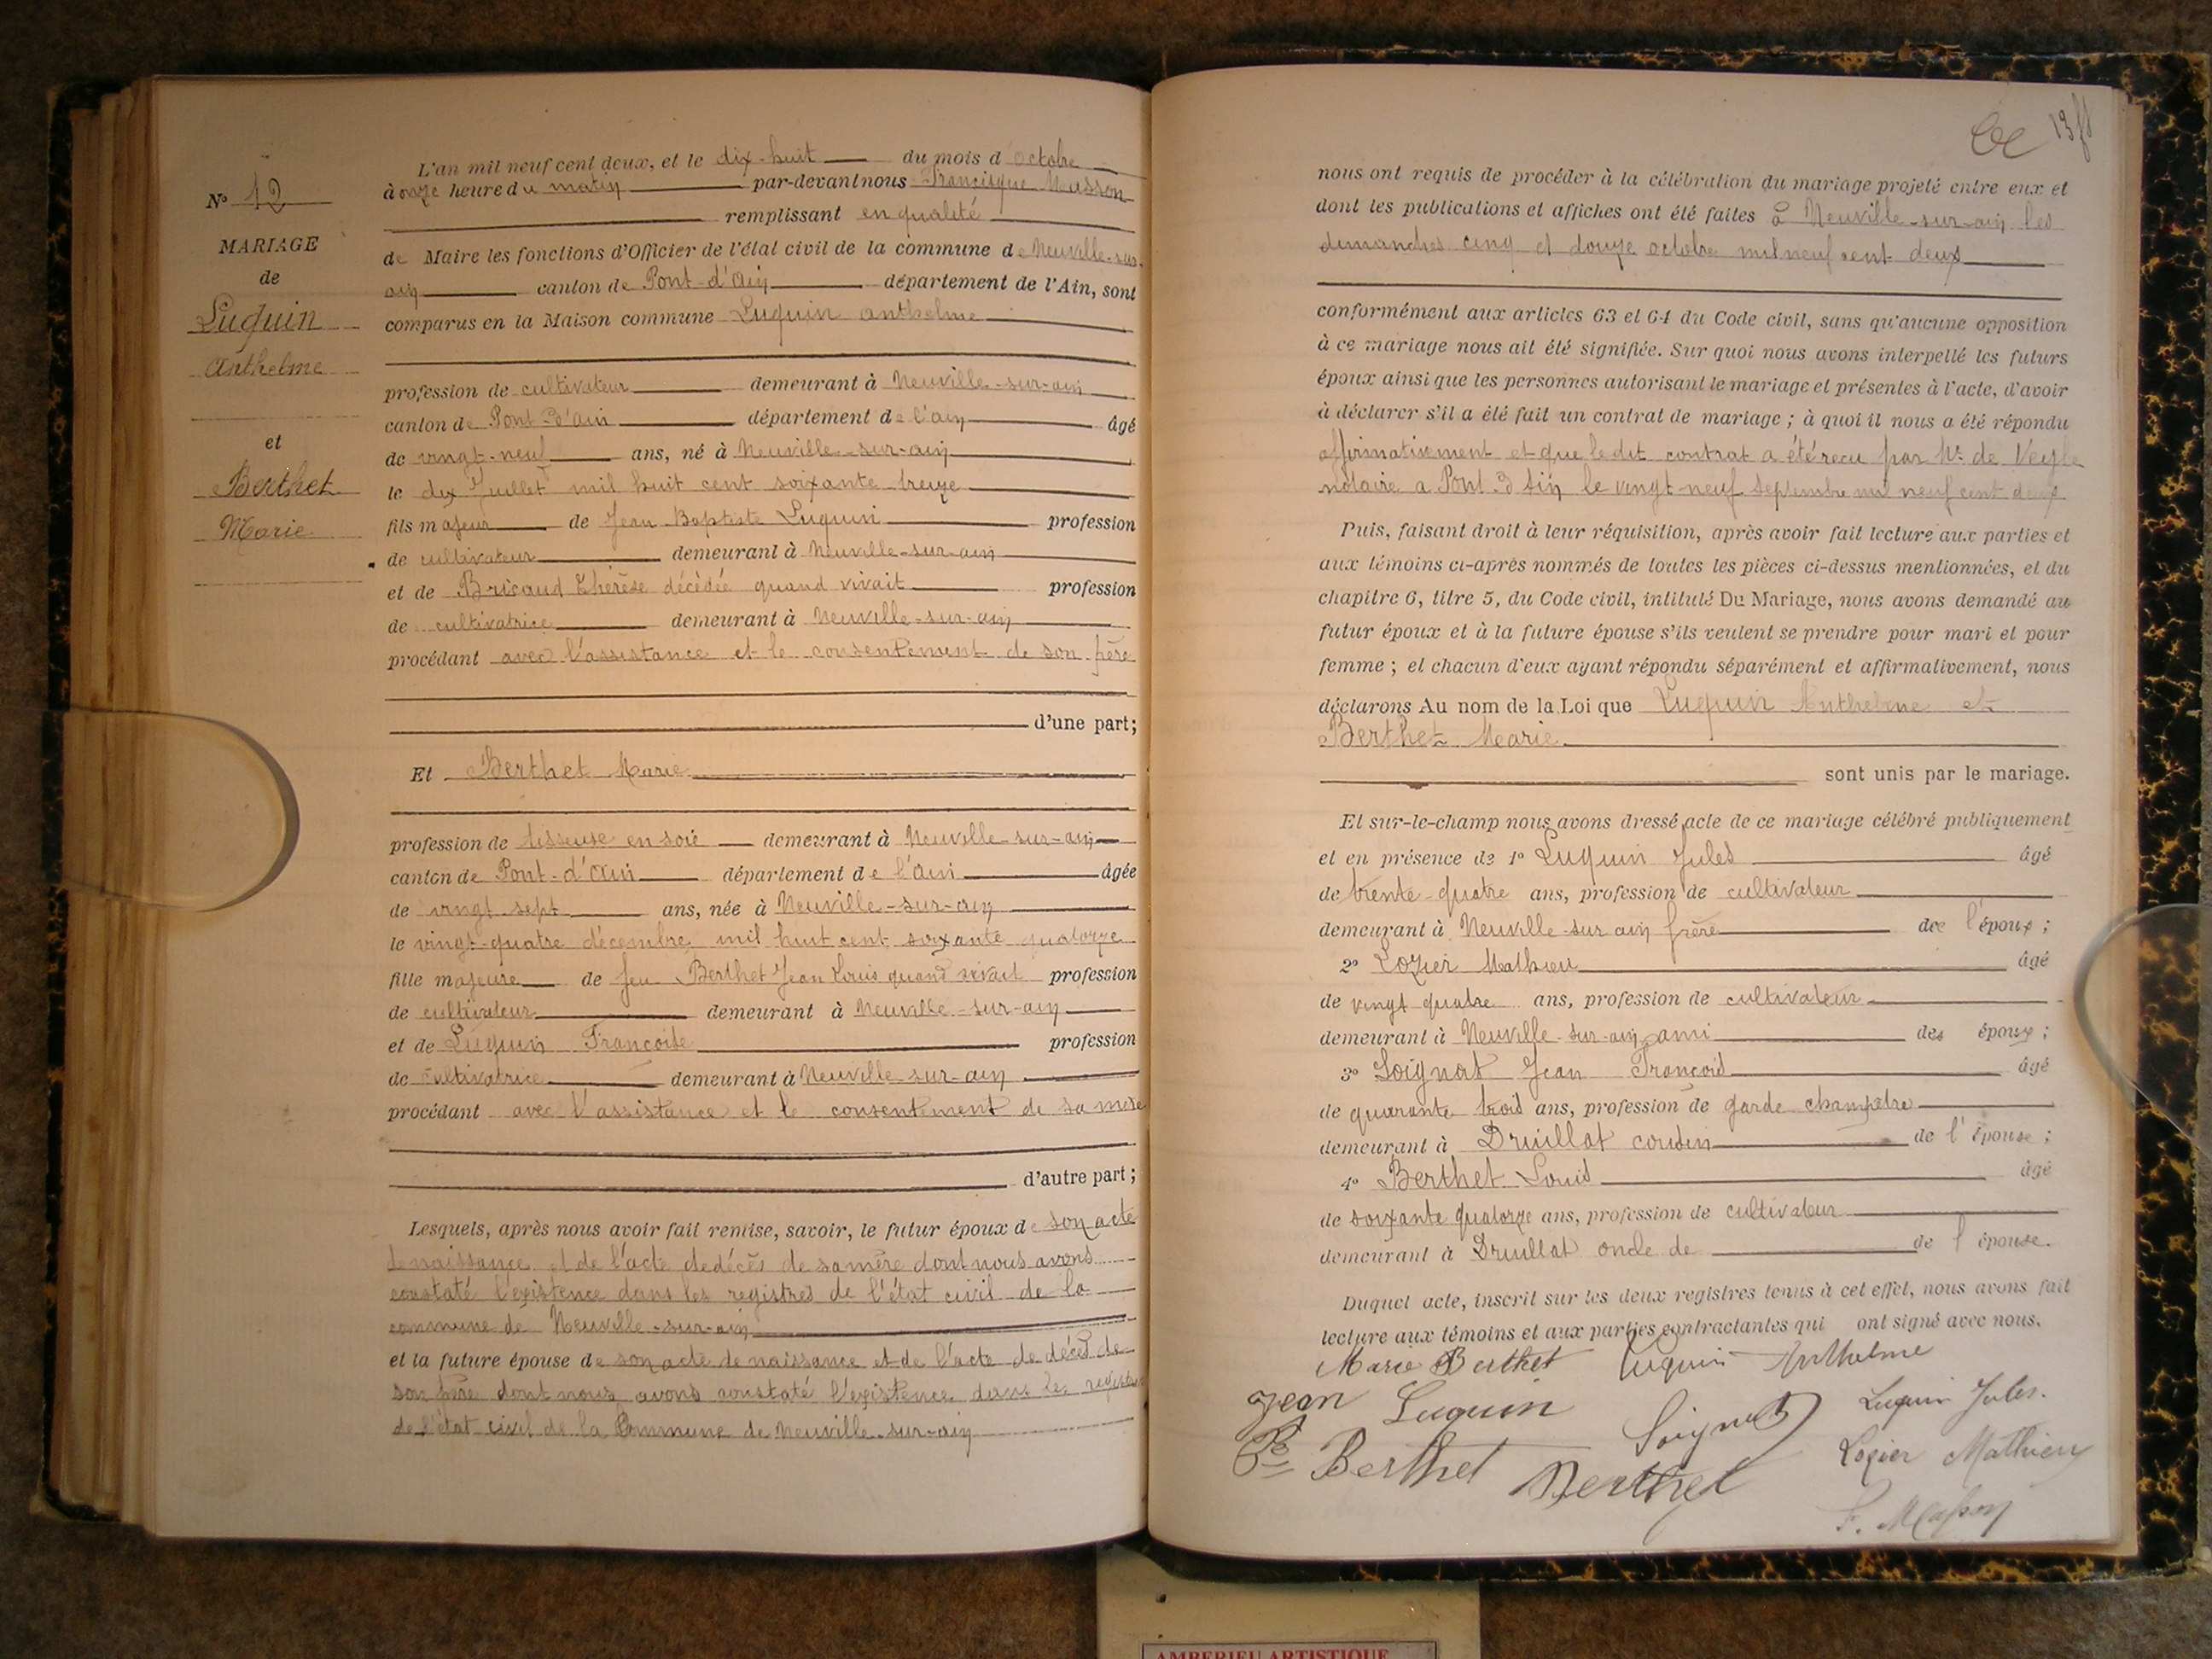 N° 12
MARIAGE
de
Luquin
Anthelme
et
Berthet
Marie
L'an mil neuf cent deux, et le dix-huit du mois d'octobre
à onze heure du matin par-devant nous Francisque Masson
remplissant en qualité
de Maire les fonctions d'Officier de l'état civil de la commune de Neuville-sur-
ain canton de Pont-d'Ain département de l'Ain, sont
comparus en la Maison commune Luquin anthelme
profession de cultivateur demeurant à Neuville-sur-ain
canton de Pont-d'ain département de l'ain âgé
de vingt-neuf ans, né à Neuville-sur-ain
le dix Juillet mil huit cent soixante treize
fils majeur de Jean Baptiste Luquin profession
de cultivateur demeurant à Neuville-sur-ain
et de Bricaud Thérèse décédée quand vivait profession
de cultivatrice demeurant à Neuville-sur-ain
procédant avec l'assistance et le consentement de son père
d'une part;
Et Berthet Marie
profession de tisseuse en soie demeurant à Neuville-sur-ain
canton de Pont-d'Ain département de l'Ain âgée
de vingt sept ans, née à Neuville-sur-ain
le vingt-quatre décembre mil huit cent soixante quatorze
fille majeure de feu Berthet Jean Louis quand vivait profession
de cultivateur demeurant à Neuville-sur-ain
et de Luquin Françoise profession
de cultivatrice demeurant à Neuville-sur-ain
procédant avec l'assistance et le consentement de sa mère
d'autre part;
Lesquels, après nous avoir fait remise, savoir, le futur époux de son acte
de naissance et de l'acte de décès de sa mère dont nous avons
constaté l'existence dans les registres de l'état civil de la
commune de Neuville-sur-ain
et la future épouse de son acte de naissance et de l'acte de décès de
son père dont nous avons constaté l'existence dans les registres
de l'état civil de la Commune de Neuville-sur-ain
nous ont requis de procéder à la célébration du mariage projeté entre eux et
dont les publications et affiches ont été faites à Neuville-sur-ain les
dimanches cinq et douze octobre mil neuf cent deux
conformément aux articles 63 et 64 du Code civil, sans qu'aucune opposition
à ce mariage nous ait été signifiée. Sur quoi nous avons interpellé les futurs
époux ainsi que les personnes autorisant le mariage et présentes à l'acte, d'avoir
à déclarer s'il a été fait un contrat de mariage; à quoi il nous a été répondu
affirmativement et que le dit contrat a été recu par Me de Veyle
notaire a Pont d'Ain le vingt-neuf septembre mil neuf cent deux
Puis, faisant droit à leur réquisition, après avoir fait lecture aux parties et
aux témoins ci-après nommés de toutes les pièces ci-dessus mentionnées, et du
chapitre 6, titre 5, du Code civil, intitulé Du Mariage, nous avons demandé au
futur époux et à la future épouse s'ils veulent se prendre pour mari et pour
femme; et chacun d'eux ayant répondu séparément et affirmativement, nous
déclarons Au nom de la Loi que Luquin Anthelme et
Berthet Marie
sont unis par le mariage.
Et sur-le-champ nous avons dressé acte de ce mariage célébré publiquement
et en présence de 1° Luquin Jules âgé
de trente-quatre ans, profession de cultivateur
demeurant à Neuville-sur ain frère de l'époux;
2° Lozier Mathieu âgé
de vingt quatre ans, profession de cultivateur
demeurant à Neuville-sur-ain ami des époux;
3° Soignat Jean François âgé
de quarante trois ans, profession de garde champêtre
demeurant à Druillat cousin de l'épouse;
4° Berthet Louis âgé
de soixante quatorze ans, profession de cultivateur
demeurant à Druillat oncle de de l'épouse.
Duquel acte, inscrit sur les deux registres tenus à cet effet, nous avons fait
lecture aux témoins et aux parties contractantes qui ont signé avec nous.
Marie Berthet Luquin Anthelme
Jean Luquin Soignat Luquin Jules.
Berthet Berthet Lozier Mathieu
F. Masson
AMBERIEU ARTISTIQUE